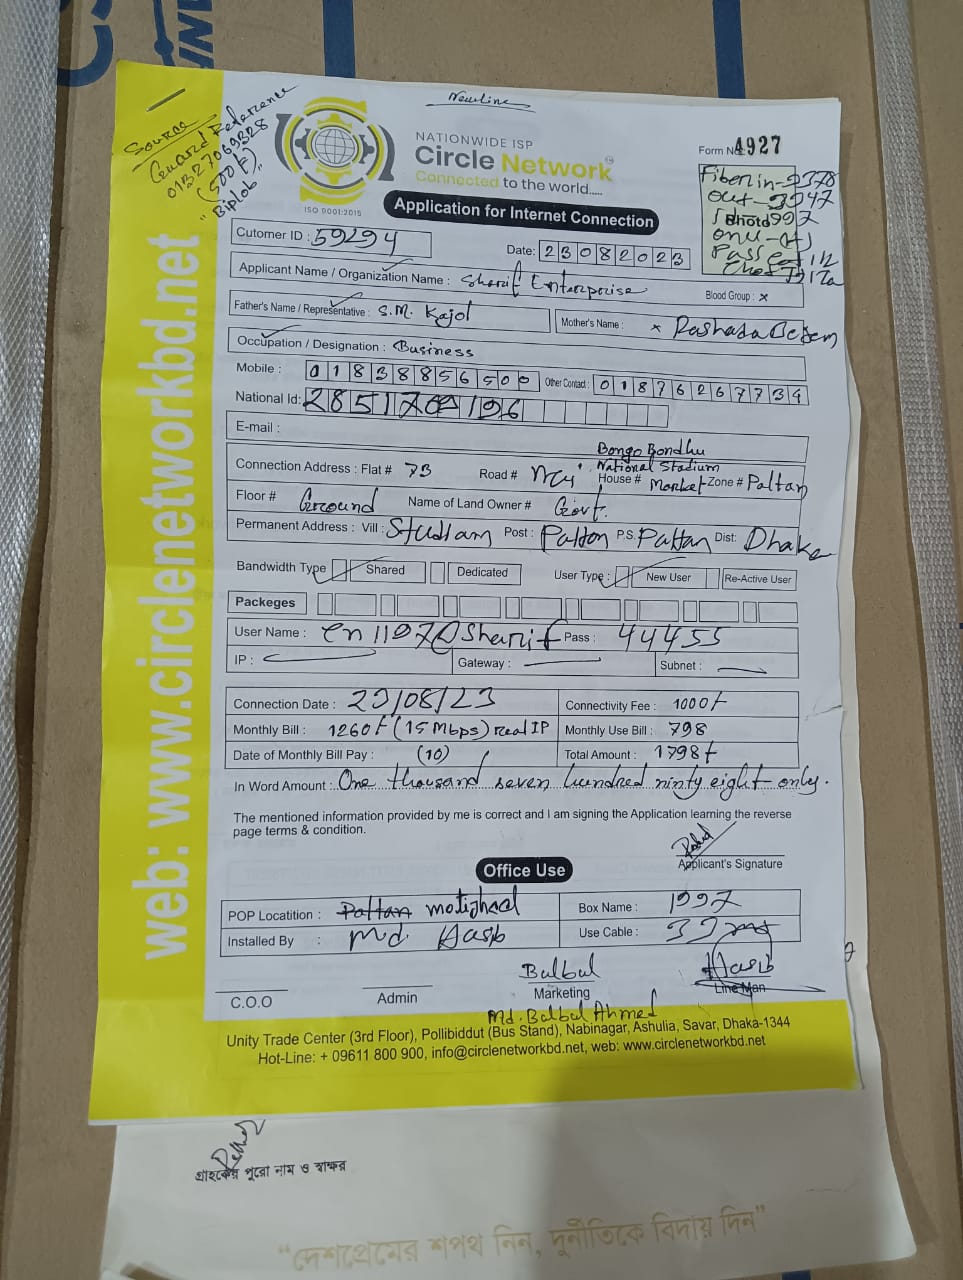 Newline
Source
Guard Reference
01327069328
(500 ৳)
"Biplob"
NATIONWIDE ISP
Circle Network
Connected to the world.....
ISO 9001:2015
Form No 4927
Application for Internet Connection
Fiber in-2378
out-
Photo
onu-(H)
Pass
Cutomer ID : 59294
Date: 23082023
Applicant Name / Organization Name : Sharif Enterprise
Blood Group : x
Father's Name / Representative : S.M. Kajol
Mother's Name : x
Occupation / Designation : Business
Mobile : 01838856500 Other Contact : 01876267734
National Id: 2851709196
E-mail :
Connection Address : Flat # 73 Road # House # Bongo Bondhu National Stadium Market Zone # Paltan
Floor # Ground Name of Land Owner # Govt.
Permanent Address : Vill : Post : Palton P.S. Paltan Dist: Dhaka
Bandwidth Type Shared Dedicated User Type : New User Re-Active User
Packeges
User Name : Sharif Pass : 44455
IP : Gateway : Subnet :
Connection Date : 23/08/23 Connectivity Fee : 1000/-
Monthly Bill : 1260৳ (15 Mbps) real IP Monthly Use Bill : 798
Date of Monthly Bill Pay : (10) Total Amount : 1798৳
In Word Amount : One thousand seven hundred ninty eight only.
The mentioned information provided by me is correct and I am signing the Application learning the reverse
page terms & condition.
Applicant's Signature
Office Use
POP Locatition : Paltan motijheel Box Name : 1997
Installed By : Md. Hasib Use Cable : 39
Bulbul Hasib
C.O.O Admin Marketing Line Man
Md. Bulbul Ahmed
Unity Trade Center (3rd Floor), Pollibiddut (Bus Stand), Nabinagar, Ashulia, Savar, Dhaka-1344
Hot-Line: + 09611 800 900, info@circlenetworkbd.net, web: www.circlenetworkbd.net
web: www.circlenetworkbd.net
গ্রাহকের পুরো নাম ও স্বাক্ষর
"দেশপ্রেমের শপথ নিন, দুর্নীতিকে বিদায় দিন"